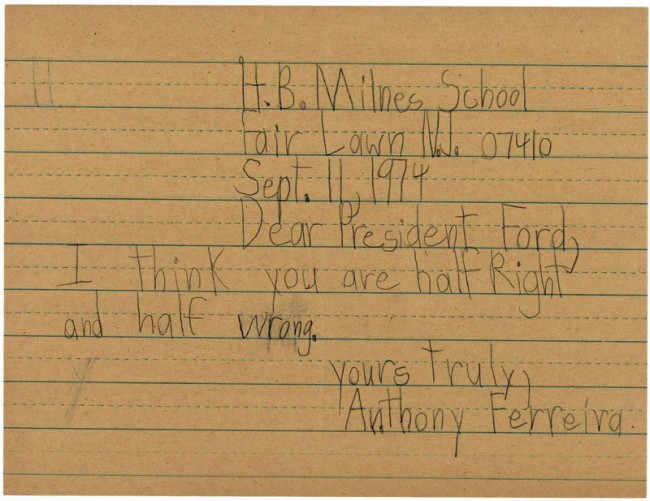 H.B. Milnes School
Fair Lawn N.J. 07410
Sept. 11, 1974
Dear President Ford,
I think you are half Right
and half wrong.
yours truly,
Anthony Ferreira.